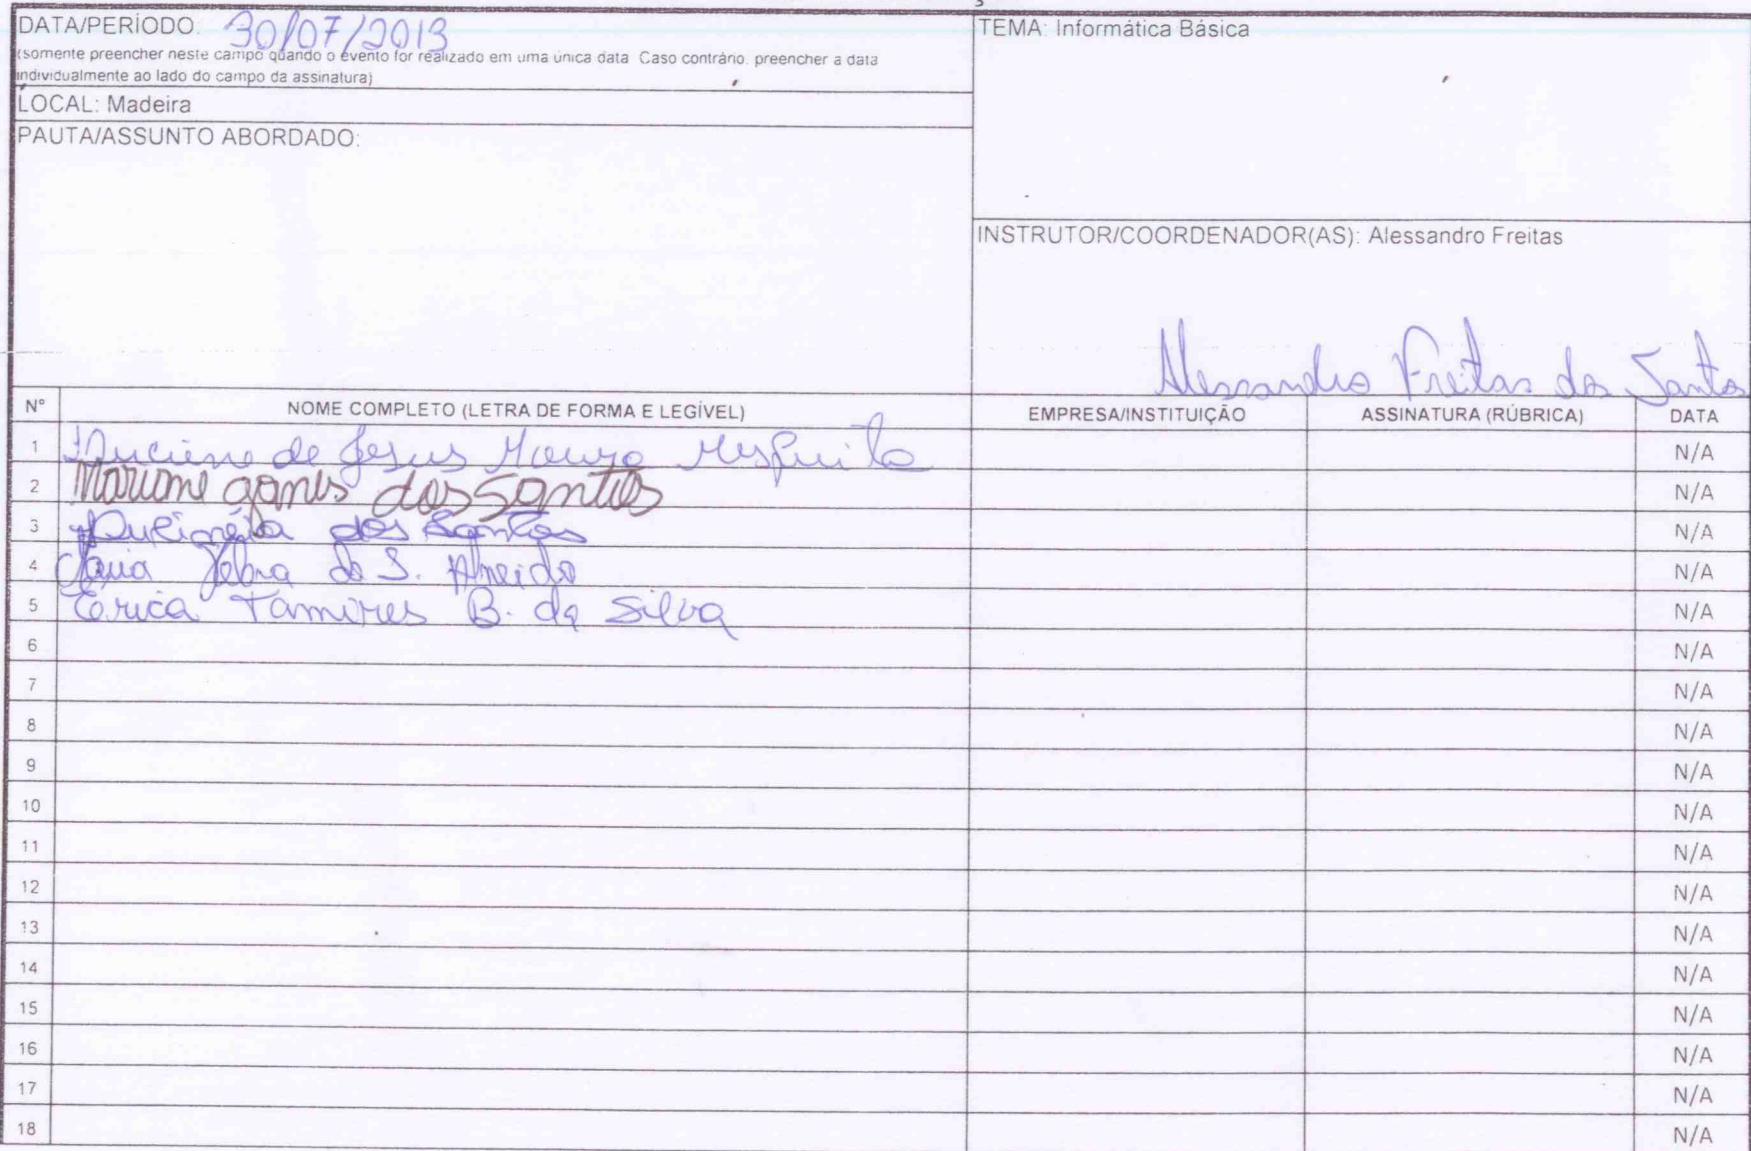 DATA/PERÍODO: 30/07/2013
(somente preencher neste campo quando o evento for realizado em uma única data. Caso contrário, preencher a data
individualmente ao lado do campo da assinatura)
LOCAL: Madeira
PAUTA/ASSUNTO ABORDADO:
TEMA: Informática Básica
INSTRUTOR/COORDENADOR(AS): Alessandro Freitas
Alessandro Freitas dos Santos
N° NOME COMPLETO (LETRA DE FORMA E LEGÍVEL) EMPRESA/INSTITUIÇÃO ASSINATURA (RÚBRICA) DATA
1 de Jesus N/A
2 gomes dos Santos N/A
3 dos Santos N/A
4 S. N/A
5 Erica Tamires B. da Silva N/A
6 N/A
7 N/A
8 N/A
9 N/A
10 N/A
11 N/A
12 N/A
13 N/A
14 N/A
15 N/A
16 N/A
17 N/A
18 N/A